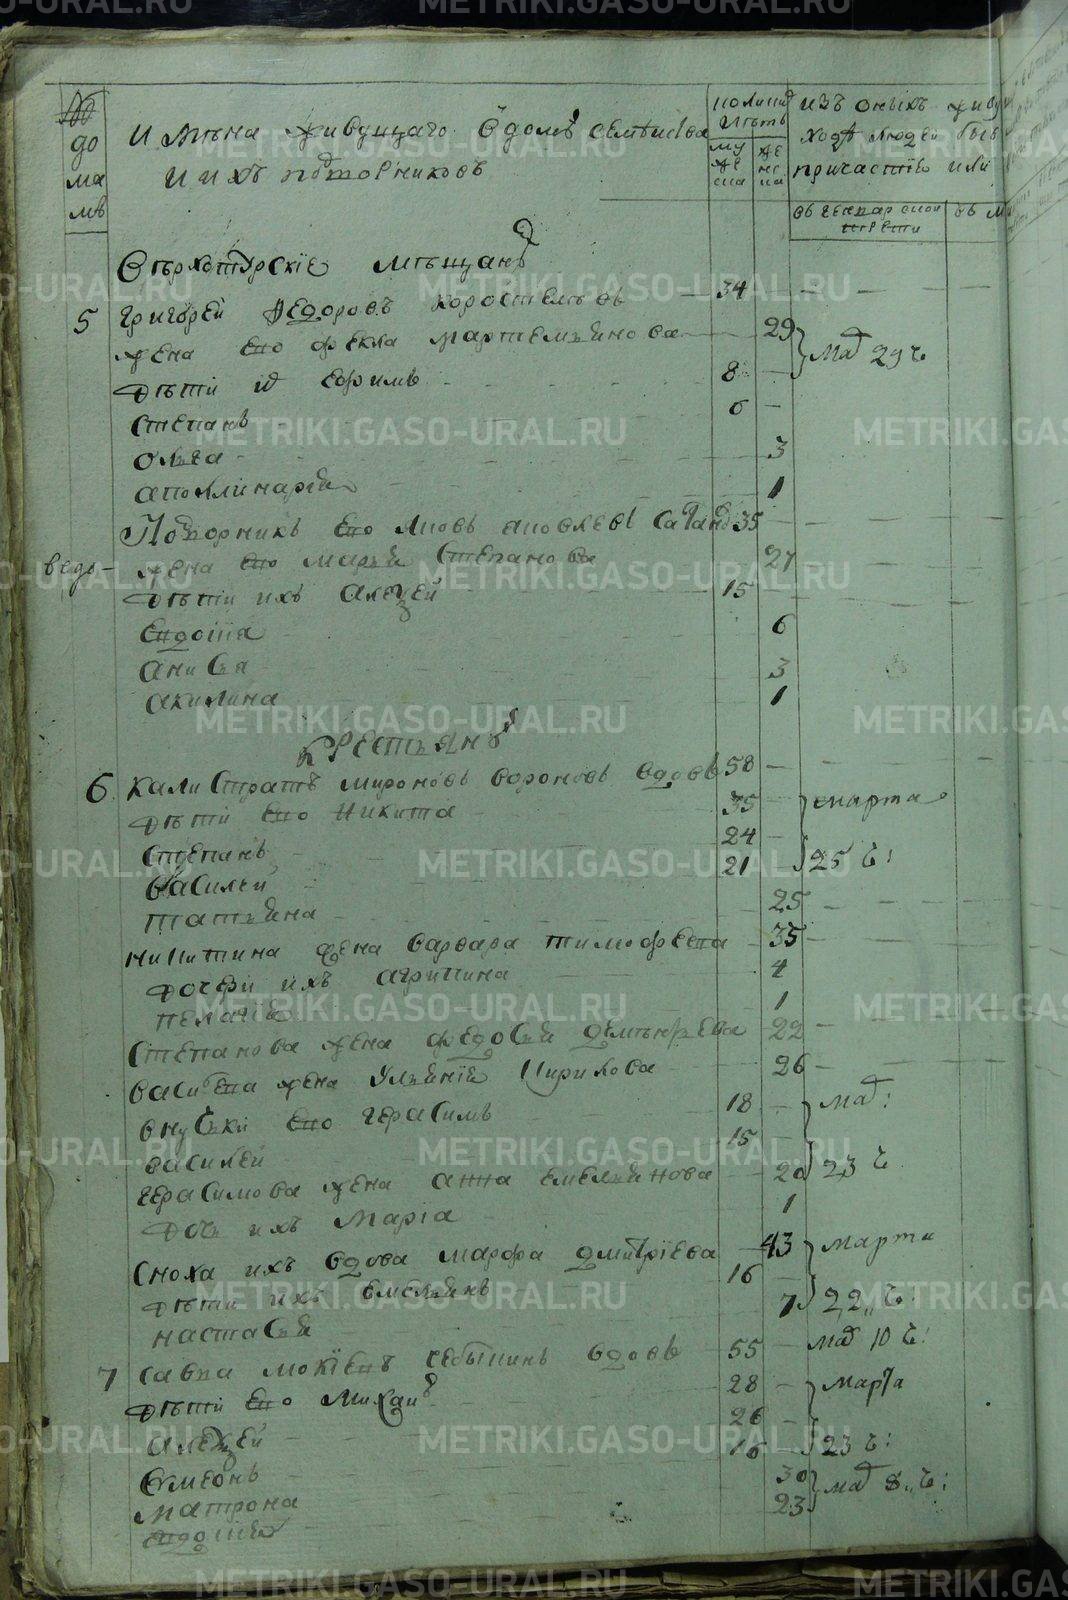 до
ма
мъ
имѣна живущаго в домѣ семѣиства
и ихъ подворниковъ
коликихъ лѣтъ
му
же
ска
же
нс
ка
изъ оныхъ
людей
причастїю или
въ
въ
верхотурские мѣщанѣ
5 григорей федоровъ коростелевъ 34
жена ево фекла мартемьянова 29
дѣти их ефимъ 8 мар 29 ч
степанъ 6
ольга 3
аполлинария 1
подворникъ ево яковъ яковлевъ 35
жена ево марья степанова 27
дѣти ихъ алеѯей 15
евдокия 6
анисья 3
акилина 1
крестьянѣ
6 калистратъ мироновъ вороновъ вдовъ 58
дѣти ево никита 35 марта
степанъ 24
василей 21 25 ч:
татьяна 25
никитина жена варвара тимофеева 35
дочери ихъ агрипина 4
пелагия 1
степанова жена федосья дементьева 22
васильева жена ульяния кирилова 26
внуки ево герасимъ 18 мар:
василей 15
герасимова жена анна емельянова 20 23 ч
дочь ихъ мария 1
сноха ихъ вдова марфа дмитриева 43 марта
дѣти ихъ емельянъ 16
настасья 7 22,, ч:
7 савва мокиевъ вдовъ 55 мар 10 ч:
дѣти ево михаил 28 марта
алеѯей 26
симеонъ 16 23 ч:
матрона 30 мар 8,, ч:
евдокия 23
METRIKI.GASO-URAL.RU